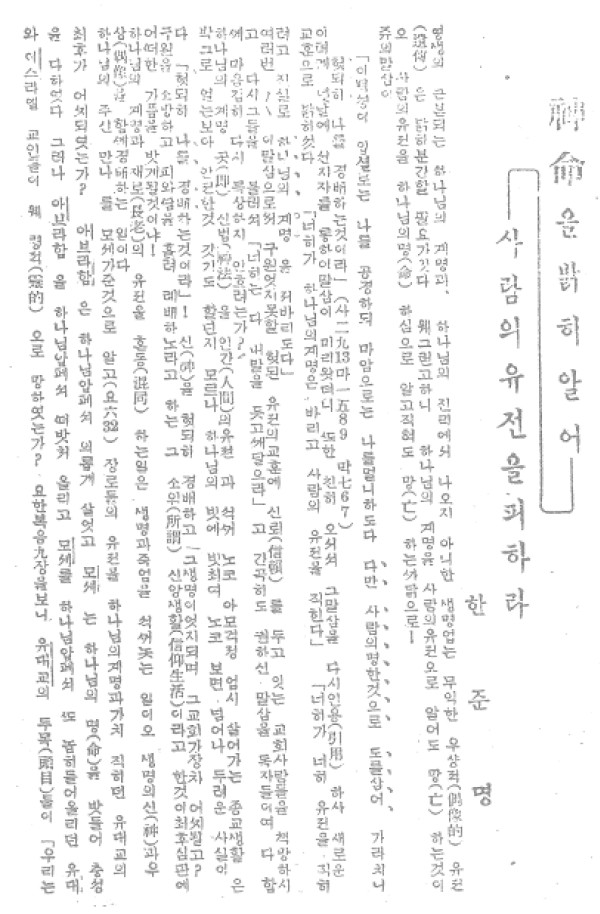 神命을 밝히 알어
사람의 유전을 피하라
한 준 명
영생의 근본되는 하나님의 계명과, 하나님의 진리에서 나오지 아니한 생명업는 무익한 우상적(偶像的) 유전
(遺傳)은 밝히분간할 필요가잇다 웨그런고하니 하나님의 계명을 사람의유전으로 알어도 망(亡)하는것이
오 사람의유전을 하나님의명(命)하심으로 알고직혀도 망(亡)하는까닭으로—
쥬의말삼이
「이백성이 입셜노는 나를 공경하되 마암으로는 나를멀니하도다 다만 사람의명한것으로 도를삼어 가라치니
헛되히 나를 경배하는것이라」(사二九13마一五89 막七67)
이러케 녯날에 선지자를 통하야말삼이 미리왓더니 또한 친히 오셔서 그말삼을 다시인용(引用)하사 새로운
교훈으로 밝히섯다 「너히가 하나님의계명은 바리고 사람의 유전을 직힌다」 「너히가 너히 유전을 직히
려고 진실로 하나님의 계명을 저바리도다」
여러번 이말삼으로써 구원엇지못할 헛된 유전의교훈에 신뢰(信賴)를 두고 잇는 교회사람들을 책망하시
고 다시그들을 불러서 「너히는 다 내말을 듯고깨달으라」고 간곡히도 권하신 말삼을 독자들이여 다 함
께 마음검히 다시 묵상하지 안흐려는가?
하나님의 계명 곳(即) 신법(神法)을 인간(人間)의유전과 석거 노코 아모걱정 업시 살어가는 종교생활은
박그로 얼는보아 안전한것 갓기도 할넌지 모르나 하나님의 빗에 빗최여 노코 보면 넘어나 두려운 사실이
다 「헛되히 나를 경배하는것이라」! 신(神)을 헛되히 경배하고 그생명이엇지되며 그교회가장차 어찌될고?
구원을 소망하고 피와열을 흘려 례배하노라고 하는 그 소위(所謂) 신앙생활(信仰生活)이라고 한것이최후심판에
어떠한 가픔을 밧게될것이냐!
하나님의 계명과 장로(長老)의 유전을 혼동(混同)하는일은 생명과죽음을 석써놋는 일이오 생명의신(神)과우
상(偶像)을 함께경배하는 일이다
하나님의 주신 만나를 모세가준것으로 알고(요六32) 장로들의 유전을 하나님의계명과가치 직히던 유대교의
최후가 어찌되엿는가? 아브라함은 하나님압페서 의롭게 살엇고 모세는 하나님의 명(命)을 밧들어 충성
을 다하엿다 그러나 아브라함을 하나님압페서 떠밧처 올리고 모세를 하나님압페서 또 놉히들어올리던 유대
와 이스라엘 교인들이 웨 령적(靈的)으로 망하엿는가? 요한복음九장을보니 유대교의 두목(頭目)들이 「우리는